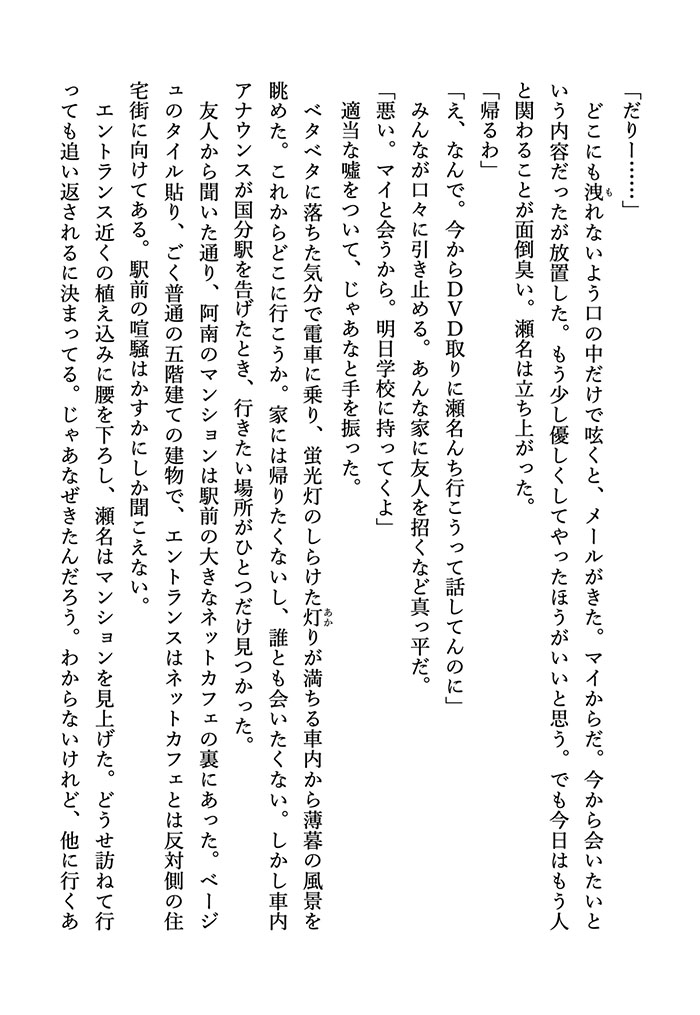 「だりー……」
どこにも洩れないよう口の中だけで呟くと、メールがきた。マイからだ。今から会いたいと
いう内容だったが放置した。もう少し優しくしてやったほうがいいと思う。でも今日はもう人
と関わることが面倒臭い。瀬名は立ち上がった。
「帰るわ」
「え、なんで。今からＤＶＤ取りに瀬名んち行こうって話してんのに」
みんなが口々に引き止める。あんな家に友人を招くなど真っ平だ。
「悪い。マイと会うから。明日学校に持ってくよ」
適当な嘘をついて、じゃあなと手を振った。
ベタベタに落ちた気分で電車に乗り、蛍光灯のしらけた灯りが満ちる車内から薄暮の風景を
眺めた。これからどこに行こうか。家には帰りたくないし、誰とも会いたくない。しかし車内
アナウンスが国分駅を告げたとき、行きたい場所がひとつだけ見つかった。
友人から聞いた通り、阿南のマンションは駅前の大きなネットカフェの裏にあった。ベージ
ュのタイル貼り、ごく普通の五階建ての建物で、エントランスはネットカフェとは反対側の住
宅街に向けてある。駅前の喧騒はかすかにしか聞こえない。
エントランス近くの植え込みに腰を下ろし、瀬名はマンションを見上げた。どうせ訪ねて行
っても追い返されるに決まってる。じゃあなぜきたんだろう。わからないけれど、他に行くあ